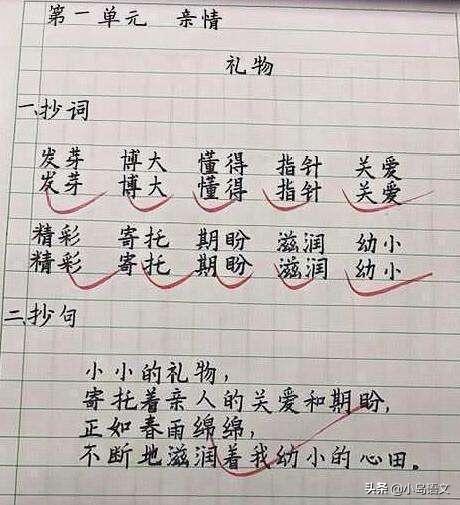 第一单元 亲情
礼物
一、抄词
发芽 博大 懂得 指针 关爱
发芽 博大 懂得 指针 关爱
精彩 寄托 期盼 滋润 幼小
精彩 寄托 期盼 滋润 幼小
二、抄句
小小的礼物，
寄托着亲人的关爱和期盼，
正如春雨绵绵，
不断地滋润着我幼小的心田。
头条 @小鸟语文